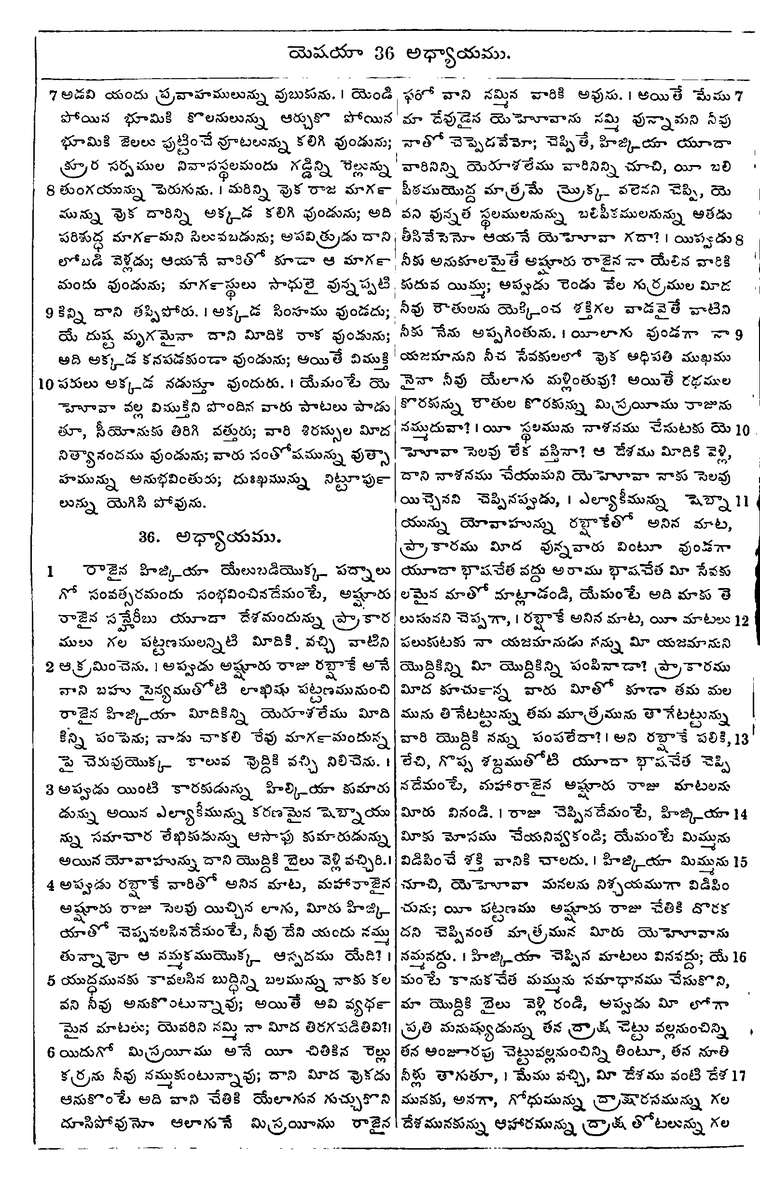 యెషయా 36 అధ్యాయము.
7 అడవి యందు ప్రవాహములున్ను వుబుకును. । యెండి
పోయిన భూమికి కొలనులున్ను ఆర్చుకొ పోయిన
భూమికి జెలలు పుట్టించే వూటలున్ను కలిగి వుండును;
క్రూర సర్పముల నివాసస్థలమందు గడ్డిన్ని రెల్లున్ను
8 తుంగయున్ను పెరుగును. । మరిన్ని వొక రాజ మార్గ
మున్ను వొక దారిన్ని అక్కడ కలిగి వుండును; అది
పరిశుద్ధ మార్గమని పిలువబడును; అపవిత్రుడు దాని
లోబడి వెళ్లడు; ఆయనే వారితో కూడా ఆ మార్గ
మందు వుండును; మార్గస్థులు సాధులై వున్నప్పటి
9 కిన్ని దాని తప్పిపోరు. । అక్కడ సింహము వుండదు;
యే దుష్ట మృగమైనా దాని మీదికి రాక వుండును;
అది అక్కడ కనపడకుండా వుండును; అయితే విముక్తి
10 పరులు అక్కడ నడుస్తూ వుందురు. । యేమంటే యె
హోవా వల్ల విముక్తిని పొందిన వారు పాటలు పాడు
తూ, సీయోనుకు తిరిగి వత్తురు; వారి శిరస్సుల మీద
నిత్యానందము వుండును; వారు సంతోషమున్ను వుత్సా
హమున్ను అనుభవింతురు; దుఃఖమున్ను నిట్టూర్పు
లున్ను యెగిసి పోవును.
36. అధ్యాయము.
1 రాజైన హిజ్కియా యేలుబడియొక్క పద్నాలు
గో సంవత్సరమందు సంభవించినదేమంటే, అష్షూరు
రాజైన సన్హేరీబు యూదా దేశమందున్న ప్రాకార
ములు గల పట్టణములన్నిటి మీదికి వచ్చి వాటిని
2 ఆక్రమించెను. । అప్పుడు అష్షూరు రాజు రబ్షాకే అనే
వాని బహు సైన్యముతోటి లాఖిషు పట్టణమునుంచి
రాజైన హిజ్కియా మీదికిన్ని యెరూశలేము మీది
కిన్ని పంపెను; వాడు చాకలి రేవు మార్గమందున్న
పై చెరువుయొక్క కాలువ వొద్దికి వచ్చి నిలిచెను. ।
3 అప్పుడు యింటి కారకుడున్ను హిల్కియా కుమారు
డున్ను అయిన ఎల్యాకీమున్ను కరణమైన షెబ్నాయు
న్ను సమాచార లేఖికుడున్ను ఆసాఫు కుమారుడున్ను
అయిన యోవాహున్ను దాని యొద్దికి బైలు వెళ్లి వచ్చిరి.।
4 అప్పుడు రబ్షాకే వారితో అనిన మాట, మహారాజైన
అష్షూరు రాజు సెలవు యిచ్చిన లాగు, మీరు హిజ్కి
యాతో చెప్పవలసినదేమంటే, నీవు దేని యందు నమ్ము
తున్నావో ఆ నమ్మకముయొక్క ఆస్పదము యేది? ।
5 యుద్ధమునకు కావలసిన బుద్ధిన్ని బలమున్ను నాకు కల
వని నీవు అనుకొంటున్నావు; అయితే అవి వ్యర్థ
మైన మాటలు; యెవరిని నమ్మి నా మీద తిరగపడితివి?।
6 యిదుగో మిస్రయీము అనే యీ చితికిన రెల్లు
కర్రను నీవు నమ్ముకుంటున్నావు; దాని మీద వొకడు
ఆనుకొంటే అది వాని చేతికి యేలాగున గుచ్చుకొని
దూసిపోవునో ఆలాగునే మిస్రయీము రాజైన
ఫరో వాని నమ్మిన వారికి అవును. । అయితే మేము 7
మా దేవుడైన యెహోవాను నమ్మి వున్నామని నీవు
నాతో చెప్పెడవేమో; చెప్పితే, హిజ్కియా యూదా
వారినిన్ని యెరూశలేము వారినిన్ని చూచి, యీ బలి
పీఠముయొద్ద మాత్రమే మ్రొక్క వలెనని చెప్పి, యె
వని వున్నత స్థలములనున్ను బలిపీఠములనున్ను అతడు
తీసివేసెనో ఆయనే యెహోవా గదా? । యిప్పుడు 8
నీకు అనుకూలమైతే అష్షూరు రాజైన నా యేలిన వారికి
కుదువ యిమ్ము; అప్పుడు రెండు వేల గుర్రముల మీద
నీవు రౌతులను యెక్కించ శక్తిగల వాడవైతే వాటిని
నీకు నేను అప్పగింతును. । యీలాగు వుండగా నా 9
యజమానుని నీచ సేవకులలో వొక అధిపతి ముఖము
నైనా నీవు యేలాగు మళ్లింతువు? అయితే రథముల
కొరకున్ను రౌతుల కొరకున్ను మిస్రయీము రాజును
నమ్ముదువా? । యీ స్థలమును నాశనము చేసుటకు యె 10
హోవా సెలవు లేక వస్తినా? ఆ దేశము మీదికి వెళ్లి,
దాని నాశనము చేయుమని యెహోవా నాకు సెలవు
యిచ్చెనని చెప్పినప్పుడు, । ఎల్యాకీమున్ను షెబ్నా 11
యున్ను యోవాహున్ను రబ్షాకేతో అనిన మాట,
ప్రాకారము మీద వున్నవారు వింటూ వుండగా
యూదా భాషచేత వద్దు అరాము భాషచేత మీ సేవకు
లమైన మాతో మాట్లాడండి, యేమంటే అది మాకు తె
లుసునని చెప్పగా, । రబ్షాకే అనిన మాట, యీ మాటలు 12
పలుకుటకు నా యజమానుడు నన్ను మీ యజమానుని
యొద్దికిన్ని మీ యొద్దికిన్ని పంపినాడా? ప్రాకారము
మీద కూర్చున్న వారు మీతో కూడా తమ మల
మును తినేటట్టున్ను తమ మూత్రమును తాగేటట్టున్ను
వారి యొద్దికి నన్ను పంపలేదా? । అని రబ్షాకే పలికి, 13
లేచి, గొప్ప శబ్దముతోటి యూదా భాషచేత చెప్పి
నదేమంటే, మహారాజైన అష్షూరు రాజు మాటలను
మీరు వినండి. । రాజు చెప్పినదేమంటే, హిజ్కియా 14
మీకు మోసము చేయనివ్వకండి; యేమంటే మిమ్మును
విడిపించే శక్తి వానికి చాలదు. । హిజ్కియా మిమ్మును 15
చూచి, యెహోవా మనలను నిశ్చయముగా విడిపిం
చును; యీ పట్టణము అష్షూరు రాజు చేతికి దొరక
దని చెప్పినంత మాత్రమున మీరు యెహోవాను
నమ్మవద్దు. । హిజ్కియా చెప్పిన మాటలు వినవద్దు; యే 16
మంటే కానుకచేత మమ్మును సమాధానము చేసుకొని,
మా యొద్దికి బైలు వెళ్లి రండి, అప్పుడు మీ లోగా
ప్రతి మనుష్యుడున్ను తన ద్రాక్ష చెట్టు వల్లనుంచిన్ని
తన అంజూరపు చెట్టువల్లనుంచిన్ని తింటూ, తన నూతి
నీళ్లు తాగుతూ, । మేము వచ్చి, మీ దేశము వంటి దేశ 17
మునకు, అనగా, గోధుమున్ను ద్రాక్షారసమున్ను గల
దేశమునకున్ను ఆహారమున్ను ద్రాక్ష తోటలున్ను గల